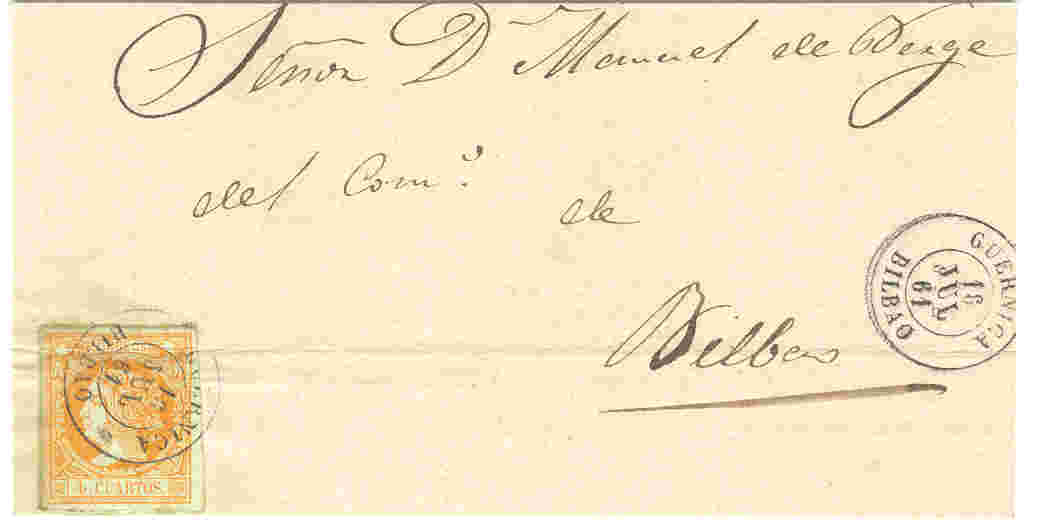 Señor Dn Manuel de Verge
del Com.o de
Bilbao
GUERNICA
16
JUL
61
BILBAO
GUERNICA
JUL
61
BILBAO
CUARTOS.